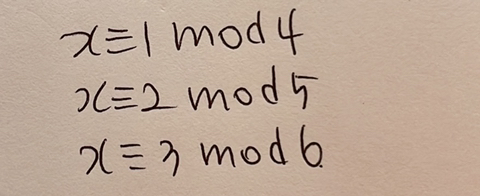 x≡1 mod 4
x≡2 mod 5
x≡3 mod 6